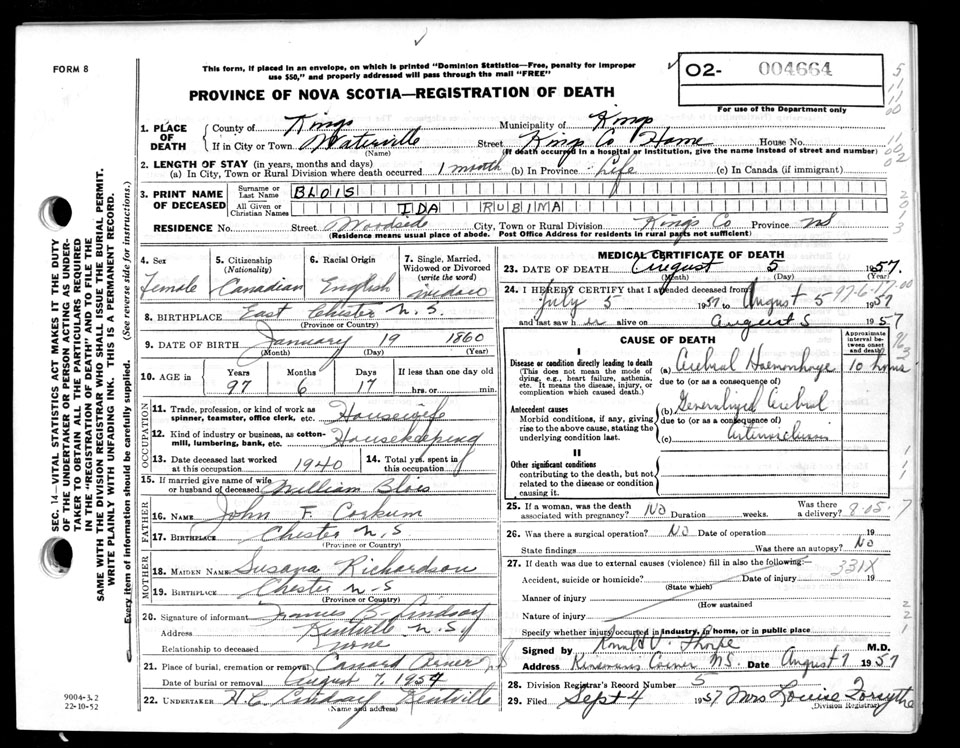 FORM 8
This form, if placed in an envelope, on which is printed "Dominion Statistics—Free, penalty for improper
use $50," and properly addressed will pass through the mail "FREE"
02- 004664
For use of the Department only
PROVINCE OF NOVA SCOTIA—REGISTRATION OF DEATH
1. PLACE OF DEATH
County of Kings Municipality of Kings
If in City or Town Waterville Street Kings Co Home House No.
(Name) (If death occurred in a hospital or institution, give the name instead of street and number)
2. LENGTH OF STAY (in years, months and days)
(a) In City, Town or Rural Division where death occurred 1 month (b) In Province Life (c) In Canada (if immigrant)
3. PRINT NAME OF DECEASED
Surname or Last Name BLOIS
All Given or Christian Names IDA RUBIMA
RESIDENCE No. Street Woodside City, Town or Rural Division Kings Co Province NS
(Residence means usual place of abode. Post Office Address for residents in rural parts not sufficient)
4. Sex Female
5. Citizenship (Nationality) Canadian
6. Racial Origin English
7. Single, Married, Widowed or Divorced (write the word) widow
8. BIRTHPLACE East Chester N.S.
(Province or Country)
9. DATE OF BIRTH January 19 1860
(Month) (Day) (Year)
10. AGE in Years 97 Months 6 Days 17 If less than one day old hrs. or min.
OCCUPATION
11. Trade, profession, or kind of work as spinner, teamster, office clerk, etc. Housewife
12. Kind of industry or business, as cotton-mill, lumbering, bank, etc. Housekeeping
13. Date deceased last worked at this occupation 1940 14. Total yrs. spent in this occupation
15. If married give name of wife or husband of deceased William Blois
FATHER
16. NAME John F. Corkum
17. BIRTHPLACE Chester N.S.
(Province or Country)
MOTHER
18. MAIDEN NAME Susana Richardson
19. BIRTHPLACE Chester N S
(Province or Country)
20. Signature of informant Francis B. Lindsay
Address Kentville N.S.
Relationship to deceased none
21. Place of burial, cremation or removal Canard
Date of burial or removal August 7, 1957
22. UNDERTAKER H.C. Lindsay Kentville
(Name and address)
MEDICAL CERTIFICATE OF DEATH
23. DATE OF DEATH August 5 1957.
(Month) (Day) (Year)
24. I HEREBY CERTIFY that I attended deceased from 97-6-17-00
July 5 1957 to August 5 1957
and last saw her alive on August 5 1957
CAUSE OF DEATH
Approximate interval between onset and death
I
Disease or condition directly leading to death
(This does not mean the mode of dying, e.g., heart failure, asthenia, etc. It means the disease, injury, or complication which caused death.)
(a) Cerebral Haemorrhage 10 hours
due to (or as a consequence of)
Antecedent causes
Morbid conditions, if any, giving rise to the above cause, stating the underlying condition last.
(b) Generalized Cerebral
due to (or as a consequence of)
(c) arteriosclerosis
II
Other significant conditions
contributing to the death, but not related to the disease or condition causing it.
25. If a woman, was the death associated with pregnancy? No Duration weeks. Was there a delivery?
26. Was there a surgical operation? No Date of operation 19
State findings Was there an autopsy? No
27. If death was due to external causes (violence) fill in also the following:— 331X
Accident, suicide or homicide? Date of injury 19
(State which)
Manner of injury
(How sustained
Nature of injury
Specify whether injury occurred in industry, in home, or in public place
Signed by Ronald V. Thorpe M.D.
Address Kinsmans Corner N.S. Date August 7 1957
28. Division Registrar's Record Number 5
29. Filed Sept 4 1957 Mrs Louise Forsythe
(Division Registrar)
SEC. 14—VITAL STATISTICS ACT MAKES IT THE DUTY
OF THE UNDERTAKER OR PERSON ACTING AS UNDER-
TAKER TO OBTAIN ALL THE PARTICULARS REQUIRED
IN THE "REGISTRATION OF DEATH" AND TO FILE THE
SAME WITH THE DIVISION REGISTRAR WHO SHALL ISSUE THE BURIAL PERMIT.
WRITE PLAINLY WITH UNFADING INK. THIS IS A PERMANENT RECORD.
Every item of information should be carefully supplied. (See reverse side for instructions.)
9004-3.2
22-10-52